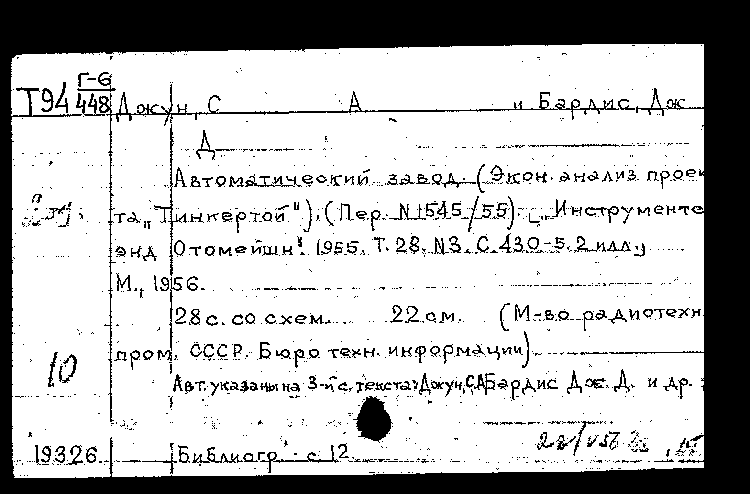 Т94 Г-6/448 Джун, С А и Бардис, Дж
Д
Автоматический завод. (Экон. анализ проек
та „Тинкертой"). (Пер. N 1545/55). „Инструментс
энд Отомейшн". 1955. Т. 28. N3. С. 430-5. 2 илл.
М., 1956.
28 с. со схем. 22 см. (М-во радиотехн
пром. СССР. Бюро техн. информации).
10
Авт. указаны на 3-й с. текста: Джун, С.А, Бардис Дж. Д. и др.
19326 Библиогр. с. 12